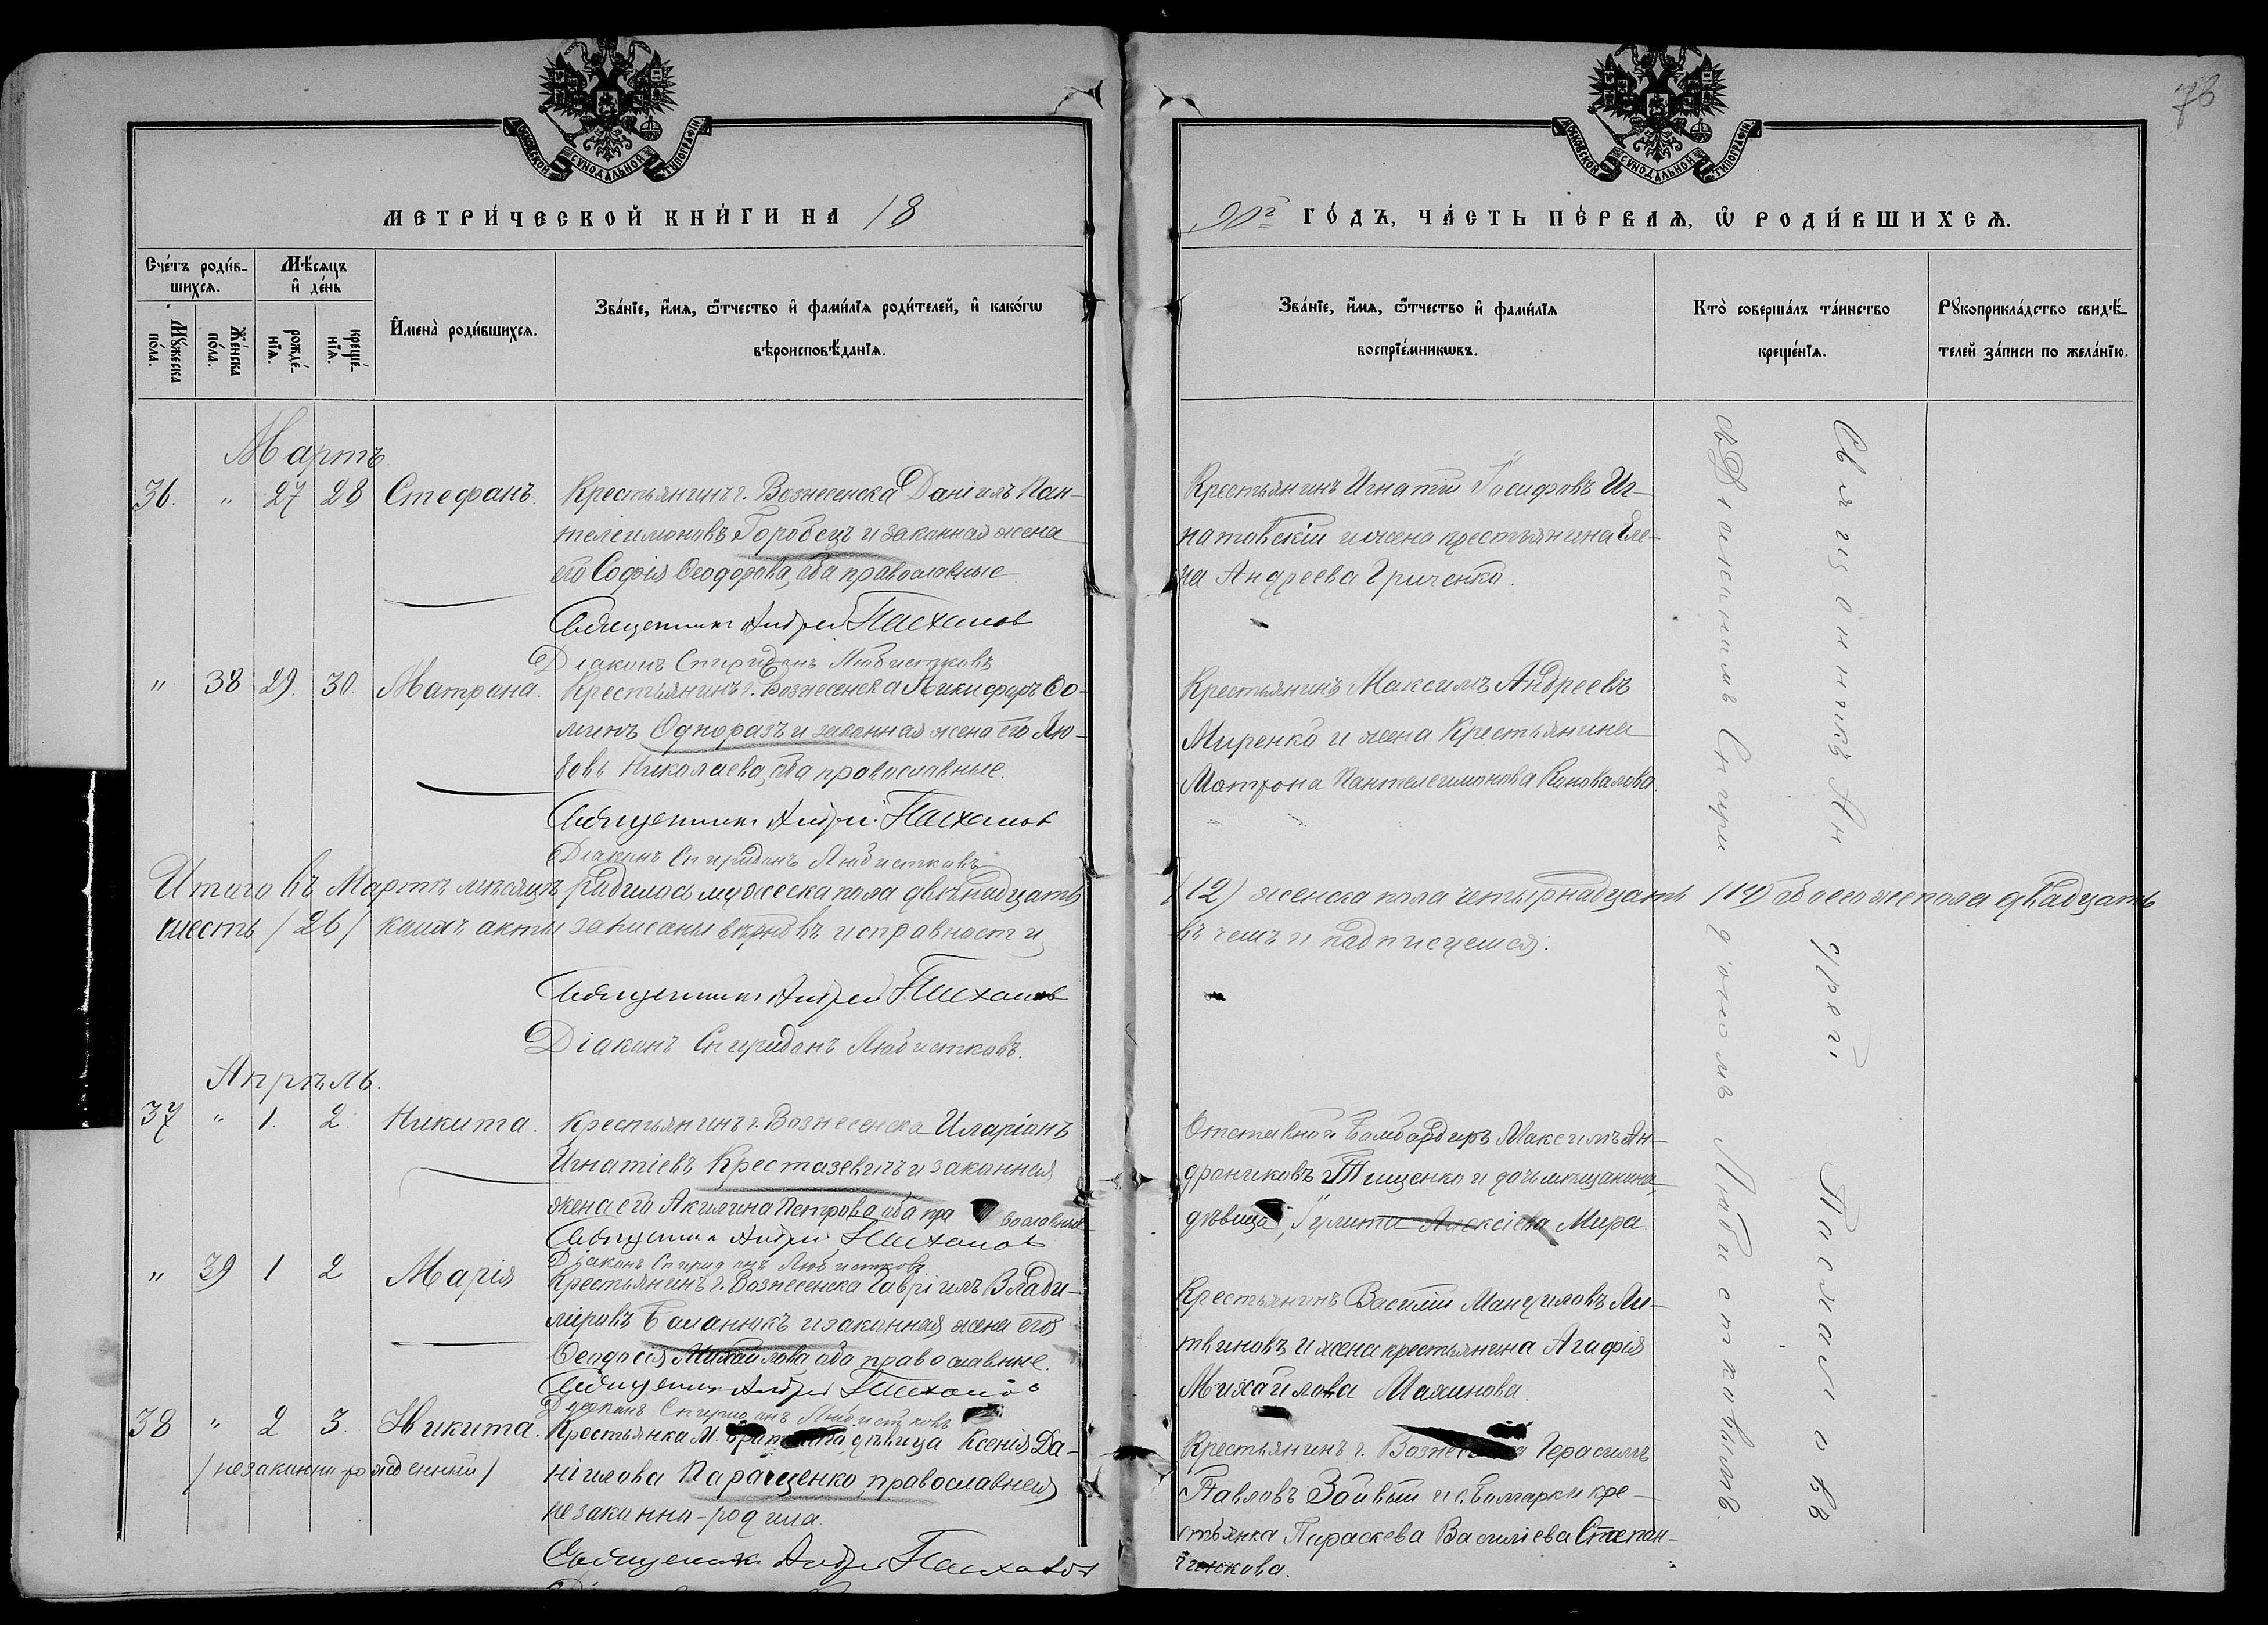 76
МОСКОВСКОЙ СѴНОДАЛЬНОЙ ТИПОГРАФІИ
МОСКОВСКОЙ СѴНОДАЛЬНОЙ ТИПОГРАФІИ
МЕТРИ́ЧЕСКОЙ КНИ́ГИ НА 18
90й ГО́ДЪ, ЧА́СТЬ ПЕ́РВАѦ, Ѡ҆ РОДИ́ВШИХСѦ.
Сче́тъ роди́в-
шихсѧ.
Мѣ́сѧцъ
и҆ де́нь
Мꙋжеска по́ла.
Же́нска по́ла.
рожде́-нїѧ.
креще́-нїѧ.
И҆мена̀ роди́вшихсѧ.
Зва́нїе, и҆́мѧ, ѻ҆́тчество и҆ фами́лїѧ роди́телей, и҆ како́гѡ
вѣроисповѣ́данїѧ.
Зва́нїе, и҆́мѧ, ѻ҆́тчество и҆ фами́лїѧ
воспрїе́мникѡвъ.
Кто̀ соверша́лъ та́инство
креще́нїѧ.
Рꙋкоприкла́дство свидѣ́-
телей за́писи по жела́нїю.
Мартъ
36. " 27 28 Стефанъ. Крестьянинъ г. Вознесенска Даніилъ Пан-
телеимоновъ Горобецъ и законная жена
его Софія Ѳеодорова, оба православные
Священникъ Андрей Пасхаловъ
Діаконъ Спиридонъ Любистковъ
Крестьянинъ Игнатій Іосифовъ Иг-
натовскій и жена крестьянина Еле-
на Андреева Гриченко.
" 38 29. 30. Матрона. Крестьянинъ г. Вознесенска Никифоръ Ѳо-
минъ Одноразъ и законная жена его Лю-
бовь Николаева, оба православные.
Священникъ Андрей Пасхаловъ
Діаконъ Спиридонъ Любистковъ
Крестьянинъ Максимъ Андреевъ
Миренко и жена Крестьянина
Матрона Пантелеимонова Коновалова.
Итого въ Мартѣ мѣсяцѣ родилось мужеска пола двѣнадцать (12) женска пола четырнадцать /14/ Обоего же пола двадцать
шесть /26/ коихъ акты записаны вѣрно въ исправности въ чемъ и подписуемся.
Священникъ Андрей Пасхаловъ
Діаконъ Спиридонъ Любистковъ.
Апрѣль.
37 " 1. 2. Никита. Крестьянинъ г. Вознесенска Иларіонъ
Игнатіевъ Крестазевичъ и законная
жена его Акилина Петрова оба православные
Священникъ Андрей Пасхаловъ
Діаконъ Спиридонъ Любистковъ
Отставной Бомбардиръ Максимъ Ан-
дрониковъ Тищенко и дочь мѣщанина,
дѣвица, Іулита Алексіева Мира.
" 39 1 2 Марія Крестьянинъ г. Вознесенска Гавріилъ Влади-
міровъ Баланюкъ и законная жена его
Ѳеодосія Михайлова оба православные.
Священникъ Андрей Пасхаловъ
Діаконъ Спиридонъ Любистковъ
Крестьянинъ Василій Мануиловъ Ли-
твиновъ и жена крестьянина Агафія
Михайлова Малинова.
38 " 2 3. Никита. Крестьянка М. дѣвица Ксенія Да-
/незаконно-рожденный/ ніилова Паращенко, православная
незаконно-родила.
Священникъ Андрей Пасхаловъ
Крестьянинъ г. Вознесенска Герасимъ
Павловъ Зайвый и с. Болгарки кре-
стьянка Параскева Василіева Степан-
Священникъ Андрей Пасхаловъ
съ Діакономъ Спиридономъ Любистковымъ.